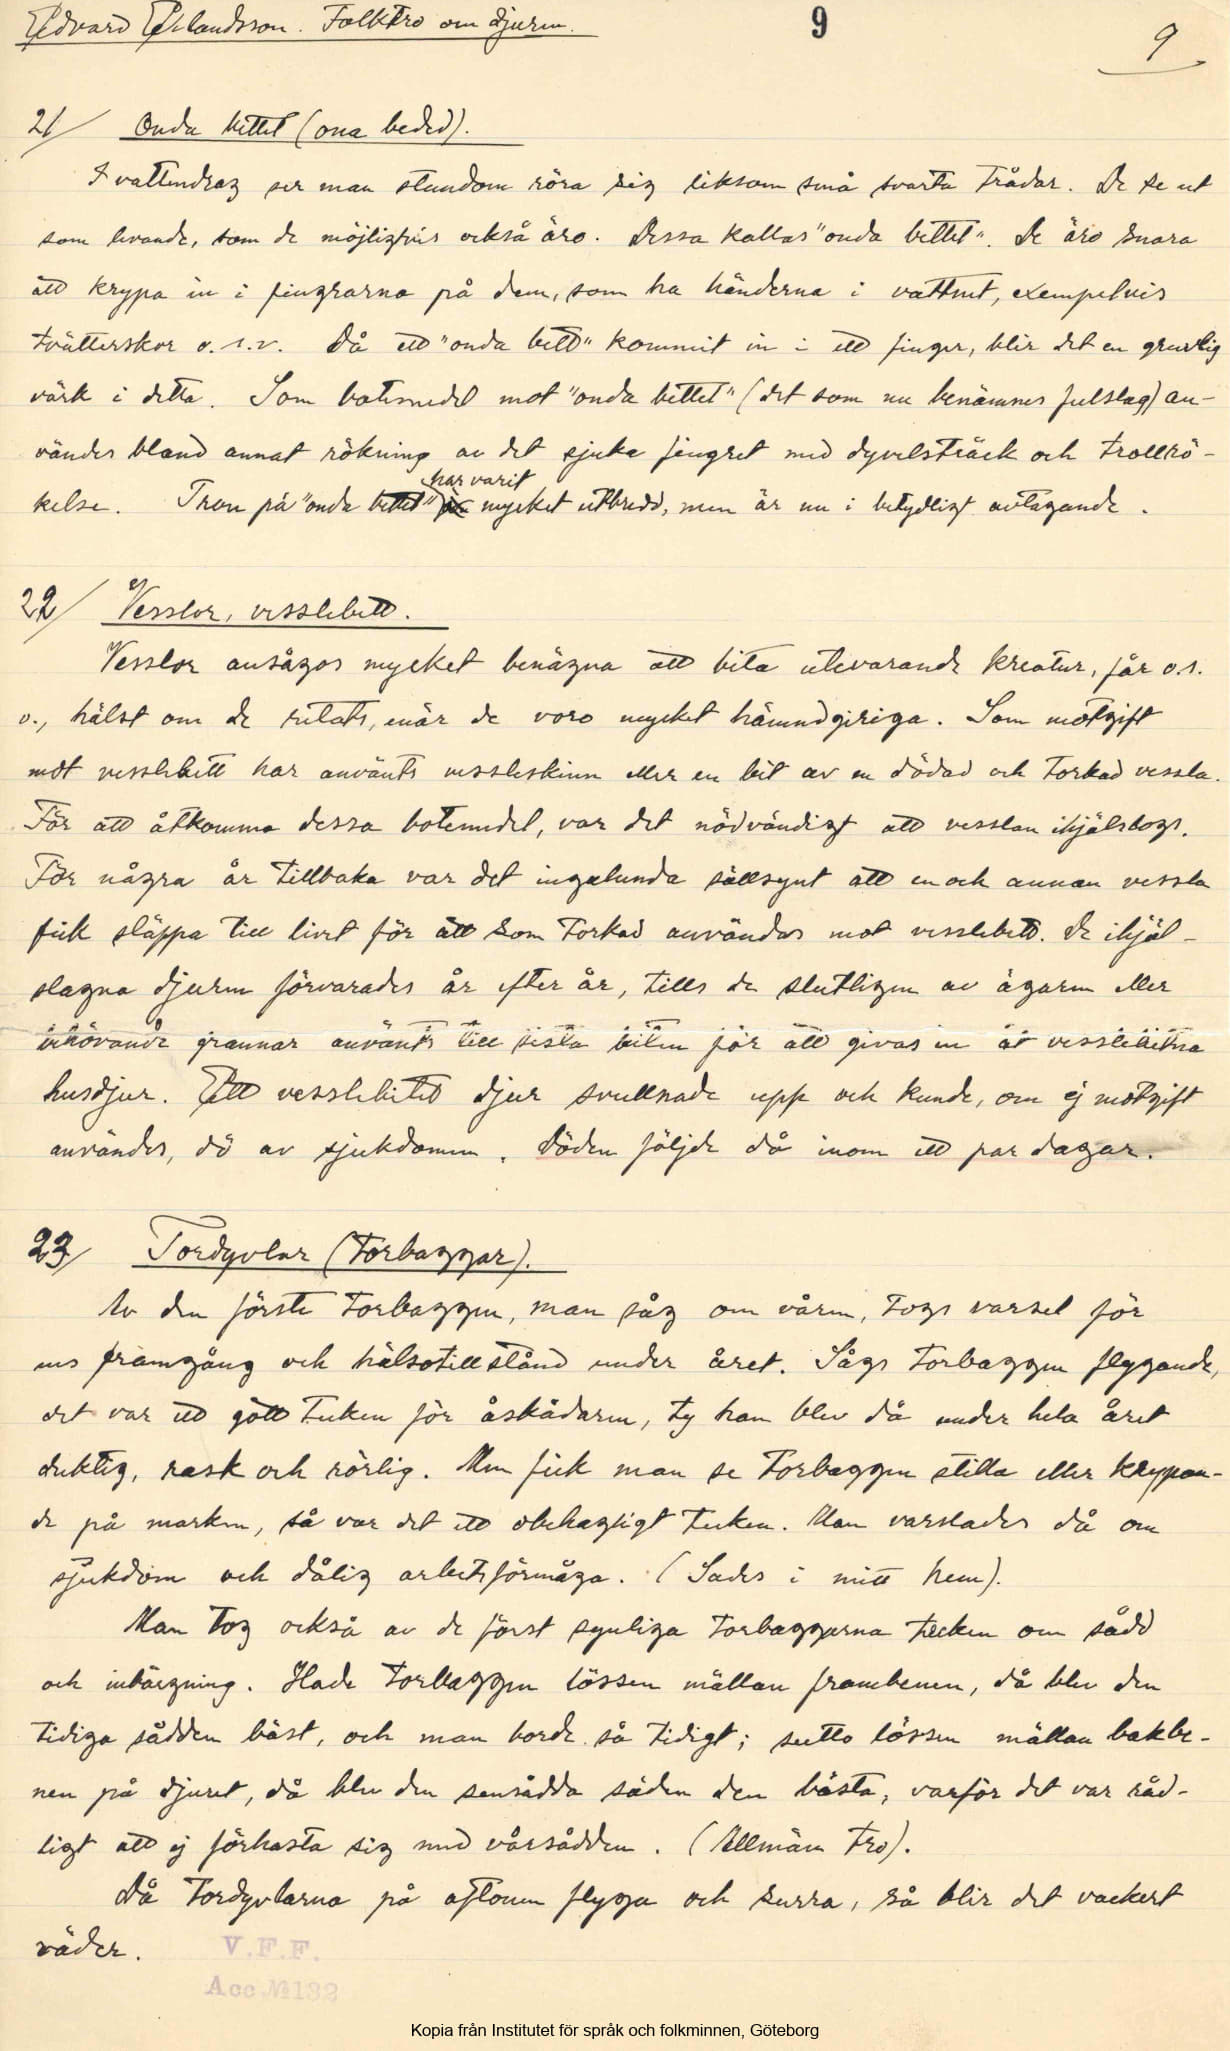 Edvard Erlandsson. Folktro om djuren.
9
9
21/ Onda bittet (ona beded).
I vattendrag ser man stundom röra sig liksom små svarta trådar. De se ut
som levande, som de möjligtvis också äro. Dessa kallas "onda bettet". De äro snara
att krypa in i fingrarna på dem, som ha händerna i vattnet, exempelvis
tvätterskor o.s.v. Då ett "onda bett" kommit in i ett finger, blir det en gruvlig
värk i detta. Som botemedel mot "onda bettet" (det som nu benämnes fulslag) an-
vändes bland annat rökning av det sjuka fingret med dyvelsträck och trollrö-
har varit
kelse. Tron på "onda bettet" mycket utbredd, men är nu i betydligt avtagande.
22/ Vesslor, vesslebett.
Vesslor ansågos mycket benägna att bita utevarande kreatur, får o.s.
v., hälst om de retats, enär de voro mycket hämndgiriga. Som motgift
mot vesslebett har använts vessleskinn eller en bit av en dödad och torkad vessla.
För att åtkomma dessa botemedel, var det nödvändigt att vesslan ihjälslogs.
För några år tillbaka var det ingalunda sällsynt att en och annan vessla
fick släppa till livet för att som torkad användas mot vesslebett. De ihjäl-
slagna djuren förvarades år efter år, tills de slutligen av ägaren eller
behövande grannar använts till sista biten för att givas in åt vesslebitna
husdjur. Ett vesslebitet djur svullnade upp och kunde, om ej motgift
användes, dö av sjukdomen. Döden följde då inom ett par dagar.
23/ Tordyvlar (Torbaggar).
Av den förste torbaggen, man såg om våren, togs varsel för
ens framgång och hälsotillstånd under året. Sågs torbaggen flygande,
det var ett gott tecken för åskådaren, ty han blev då under hela året
duktig, rask och rörlig. Men fick man se torbaggen stilla eller krypan-
de på marken, så var det ett obehagligt tecken. Man varslades då om
sjukdom och dålig arbetsförmåga. (Sades i mitt hem).
Man tog också av de först synliga torbaggarna tecken om sådd
och inbärgning. Hade torbaggen lössen mällan frambenen, då blev den
tidiga sådden bäst, och man borde så tidigt; sutto lössen mällan bakbe-
nen på djuret, då blev den sensådda säden den bästa, varför det var råd-
ligt att ej förhasta sig med vårsådden. (Allmän tro).
Då tordyvlarna på aftonen flyga och surra, så blir det vackert
väder.
V.F.F.
Acc.№132
Kopia från Institutet för språk och folkminnen, Göteborg